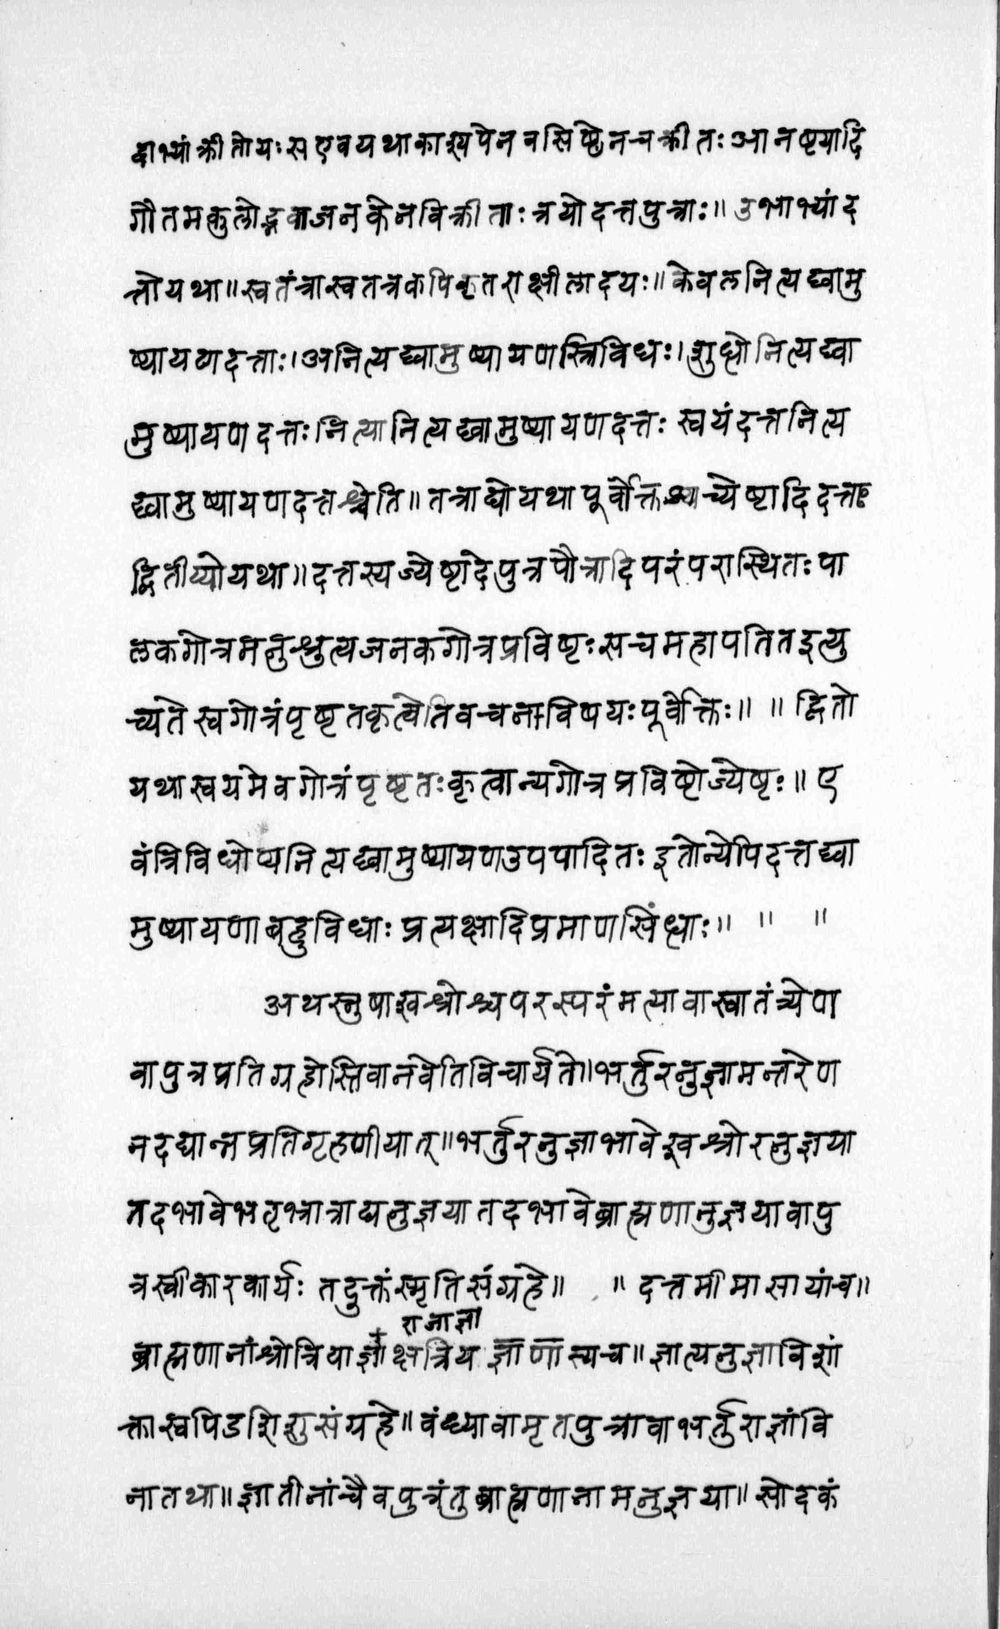 द्वाभ्यां क्रीतोयः स एव यथा काश्यपेन वसिष्ठेन च क्रीतः आनष्टयादि
गौतमकुलोद्भवाजनकेनविक्रीताः त्रयोदत्तपुत्राः॥ उभाभ्यां द
त्तोयथा॥ स्वतंत्रास्वतन्त्रकपिकृतराक्षीलादयः॥ केवलनित्यद्व्यामु
ष्यायणदत्ताः। अनित्यद्व्यामुष्यायणस्त्रिविधः। शुद्धोनित्यद्व्या
मुष्यायणदत्तः नित्यानित्यद्व्यामुष्यायणदत्तः स्वयंदत्तनित्य
द्व्यामुष्यायणदत्तश्चेति॥ तत्राद्योयथा पूर्वोक्त ज्येष्टादिदत्तः
द्वितीय्योयथा॥ दत्तस्यज्येष्टादेपुत्रपौत्रादिपरंपरास्थितः पा
लकगोत्रमनुश्रुत्यजनकगोत्रप्रविष्टः सचमहापतितइत्यु
च्यते स्वगोत्रंपृष्टतकृत्वेतिवचनाविषयः पूर्वोक्तिः॥ ॥ द्वितो
यथास्वयमेवगोत्रंपृष्टतः कृत्वान्यगोत्रप्रविष्टोज्येष्टः॥ ए
वंत्रिविधोप्यनित्यद्व्यामुष्यायणउपपादितः इतोन्येपिदत्तद्व्या
मुष्यायणाबहुविधाः प्रत्यक्षादिप्रमाणसिंध्धाः॥ ॥ ॥
अथस्नुषाश्वश्रोश्चपरस्परंमत्यावास्वातंत्र्येण
वापुत्रप्रतिग्रहोस्तिवानवेतिविचार्यते॥ भर्तुरनुज्ञामन्तरेण
नदद्यान्नप्रतिगृह्णीयात्॥ भर्तुरनुज्ञाभावेश्वश्रोरनुज्ञया
तदभावेभतृभ्रात्राद्यनुज्ञया तदभावेब्राह्मणानुज्ञयावापु
त्रस्वीकारकार्यः तदुक्तंस्मृतिसंग्रहे॥ ॥ दत्तमीमासायांच॥
राजाज्ञा
ब्राह्मणानांश्रोत्रियाज्ञा क्षत्रिय ज्ञाणास्यच॥ ज्ञात्यनुज्ञाविशां
क्तास्वपिडशिशुसंग्रहे॥ वंध्यावामृतपुत्रावाभर्तुराज्ञांवि
नातथा॥ ज्ञातीनांचैवपुत्रंतुब्राह्मणानामनुज्ञया॥ सोदकं